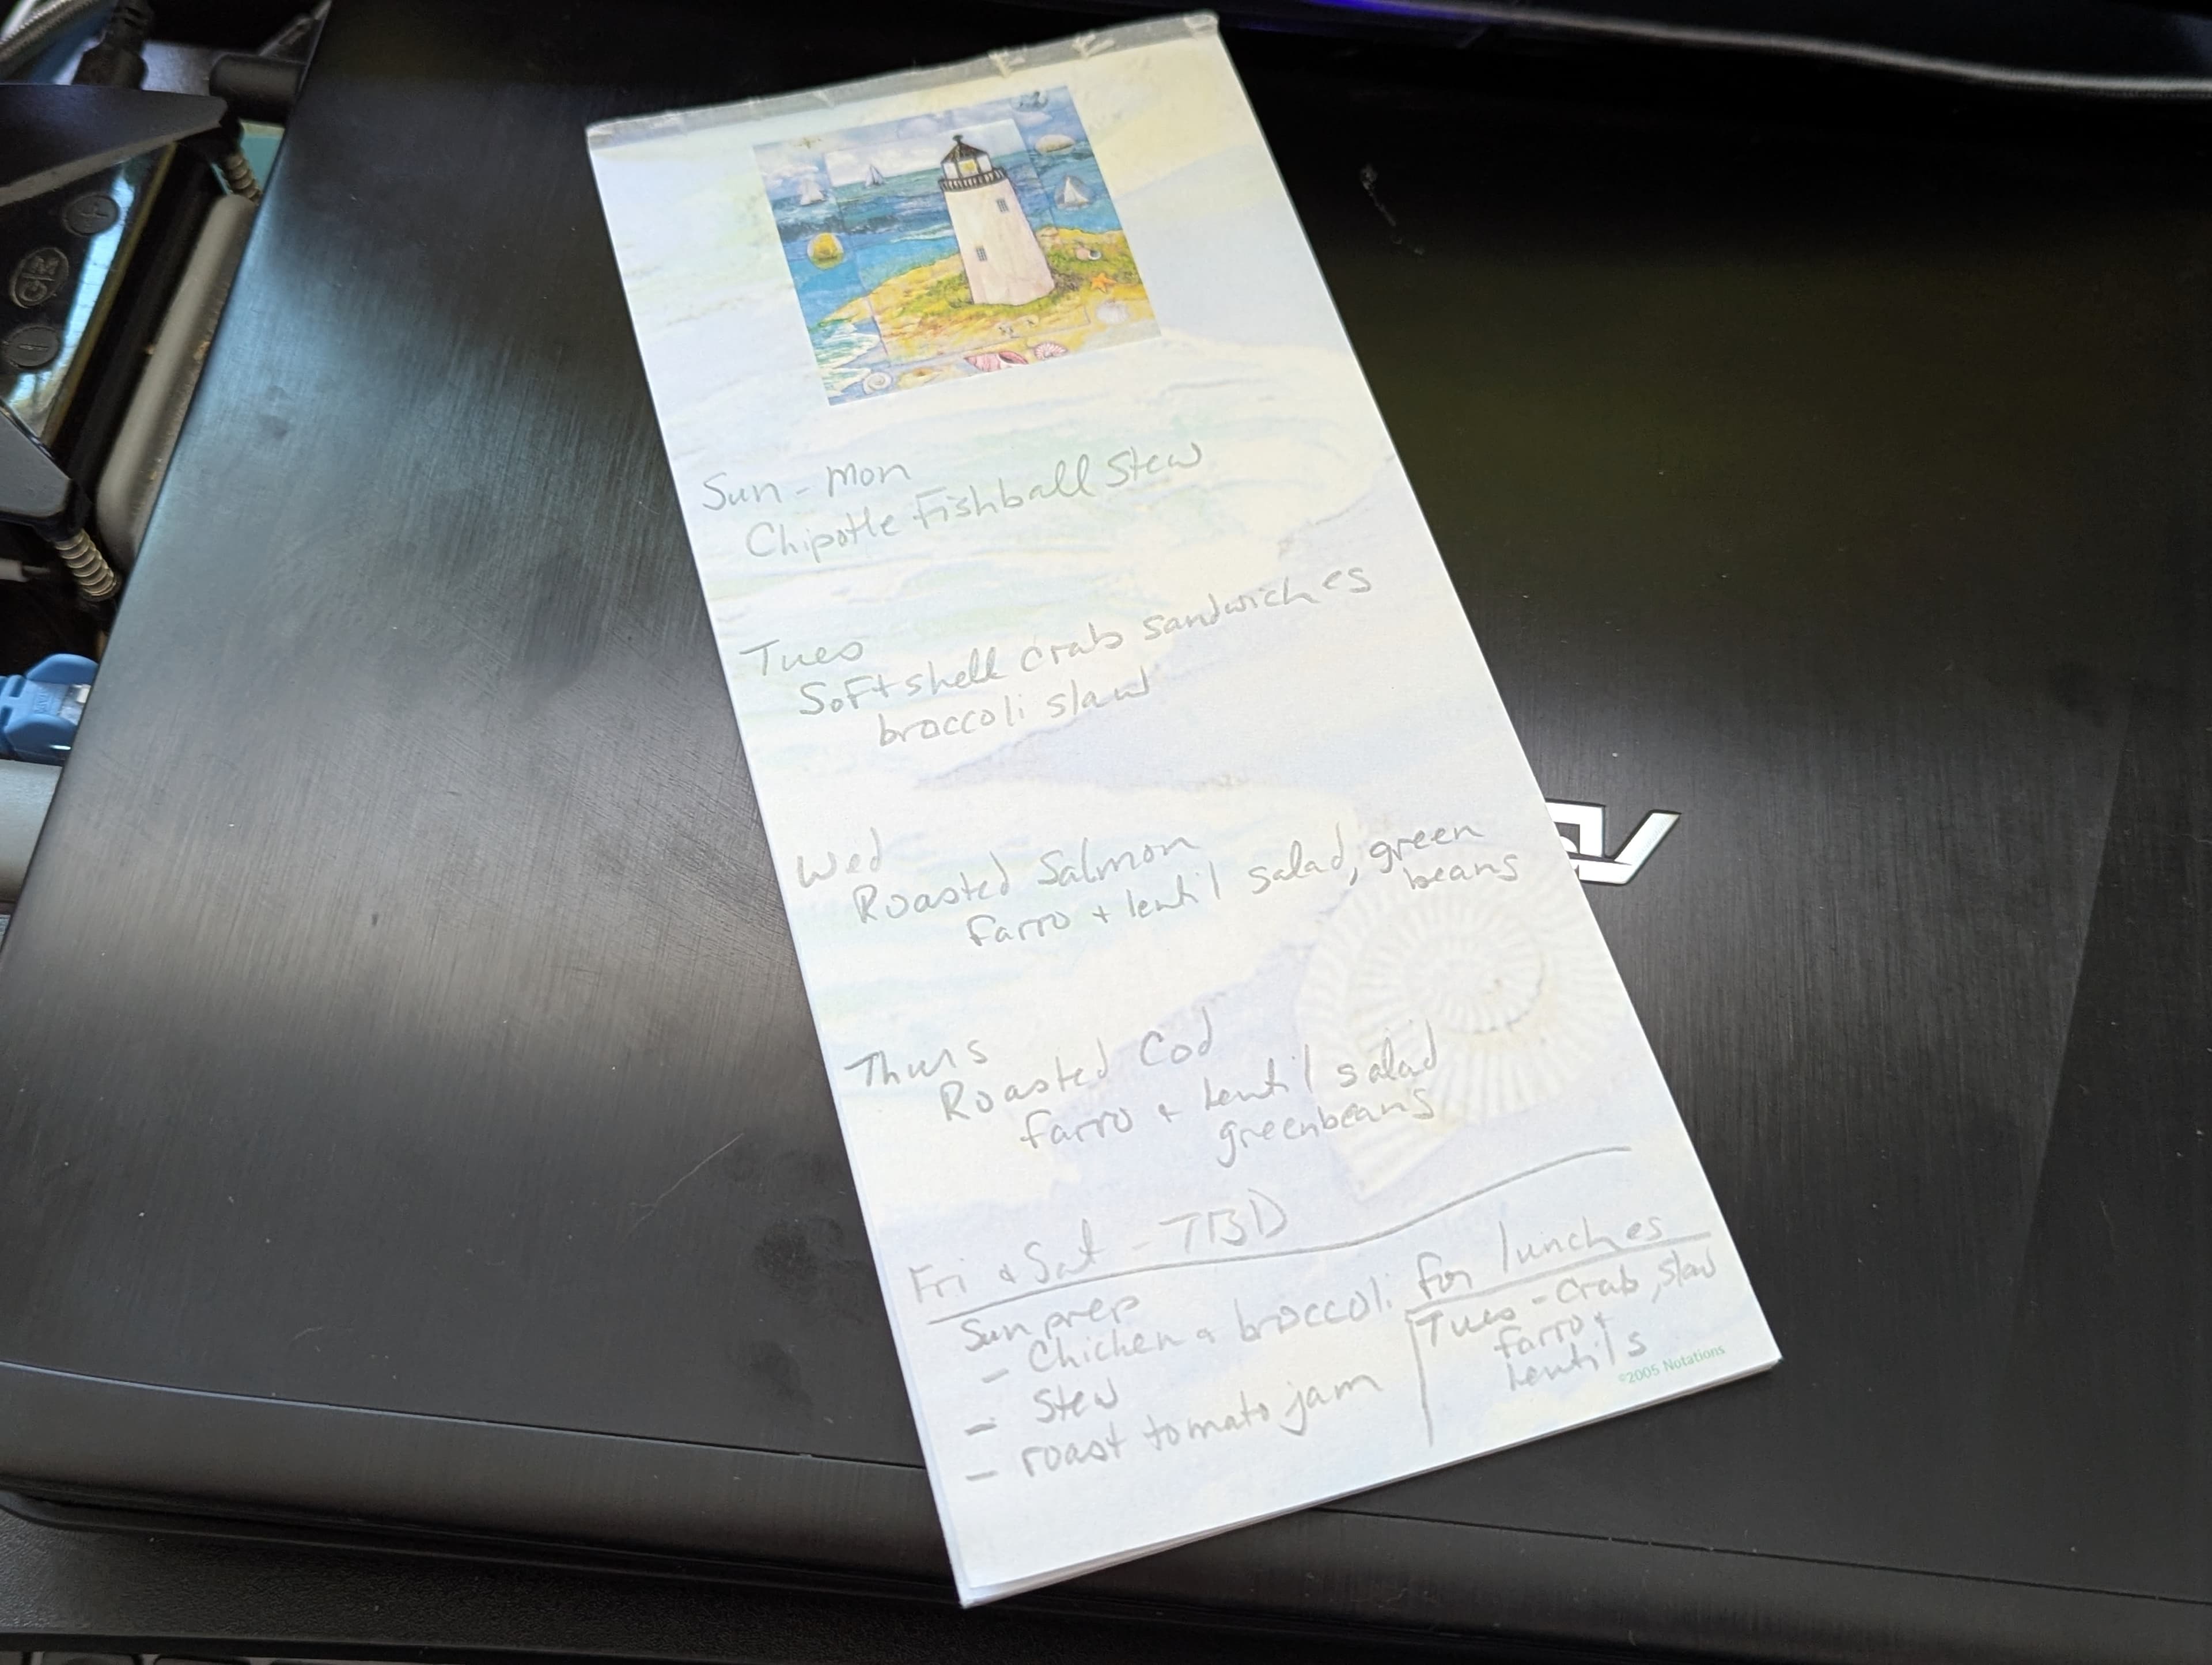 Sun - Mon
Chipotle Fishball Stew
Tues
Soft shell crab sandwiches
broccoli slaw
Wed
Roasted Salmon
farro + lentil salad, green
beans
Thurs
Roasted Cod
farro + lentil salad
greenbeans
Fri & Sat - TBD
Sun prep
- Chicken & broccoli for lunches
- Stew
- roast tomato jam
Tues - Crab, slaw
farro +
lentils
©2005 Notations